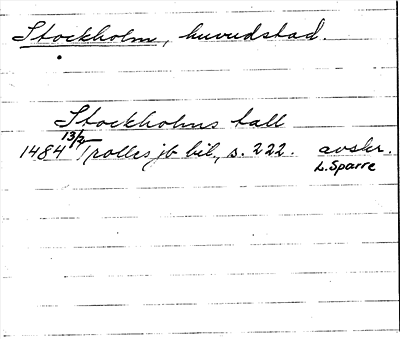 Stockholm, huvudstad.
Stockholms tall
1484 13/2 Trolles jb bil, s. 222. avskr.
L. Sparre